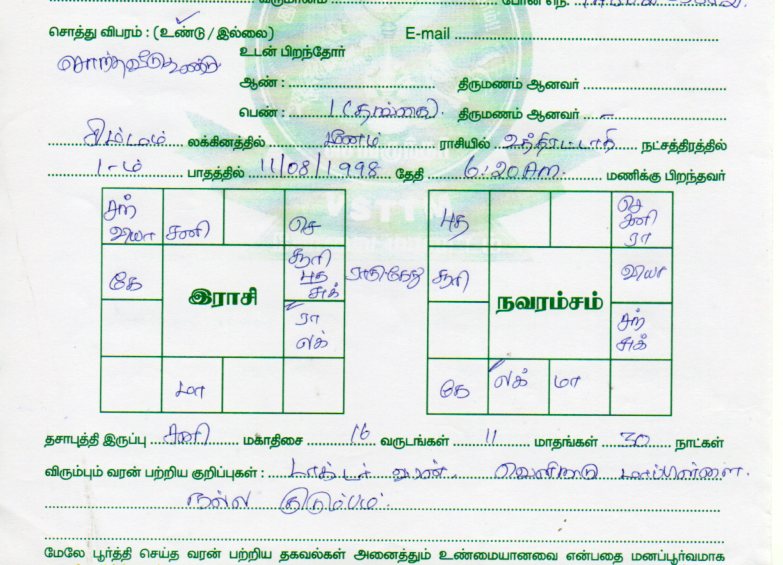 வருமானம் போன் எண்.
சொத்து விபரம் : (உண்டு / இல்லை) E-mail
சொந்தவீடு உண்டு உடன் பிறந்தோர்
ஆண் : திருமணம் ஆனவர்
பெண் : 1 (தங்கை). திருமணம் ஆனவர் –
சிம்மம் லக்கினத்தில் மீனம் ராசியில் உத்திரட்டாதி நட்சத்திரத்தில்
1-ம் பாதத்தில் 11/08/1998 தேதி 6:20 Am. மணிக்கு பிறந்தவர்
VSTTM
சந் வியா சனி செ
கே சூரி புத சுக் ராகு கேது
இராசி
ரா லக்
மா
புத செ சனி ரா
சூரி வியா
நவரம்சம்
சந் சுக்
கே லக் மா
தசாபுத்தி இருப்பு சனி மகாதிசை 16 வருடங்கள் 11 மாதங்கள் 30 நாட்கள்
விரும்பும் வரன் பற்றிய குறிப்புகள் : டாக்டர் வரன். வெளிநாடு மாப்பிள்ளை.
நல்ல குடும்பம்.
மேலே பூர்த்தி செய்த வரன் பற்றிய தகவல்கள் அனைத்தும் உண்மையானவை என்பதை மனப்பூர்வமாக